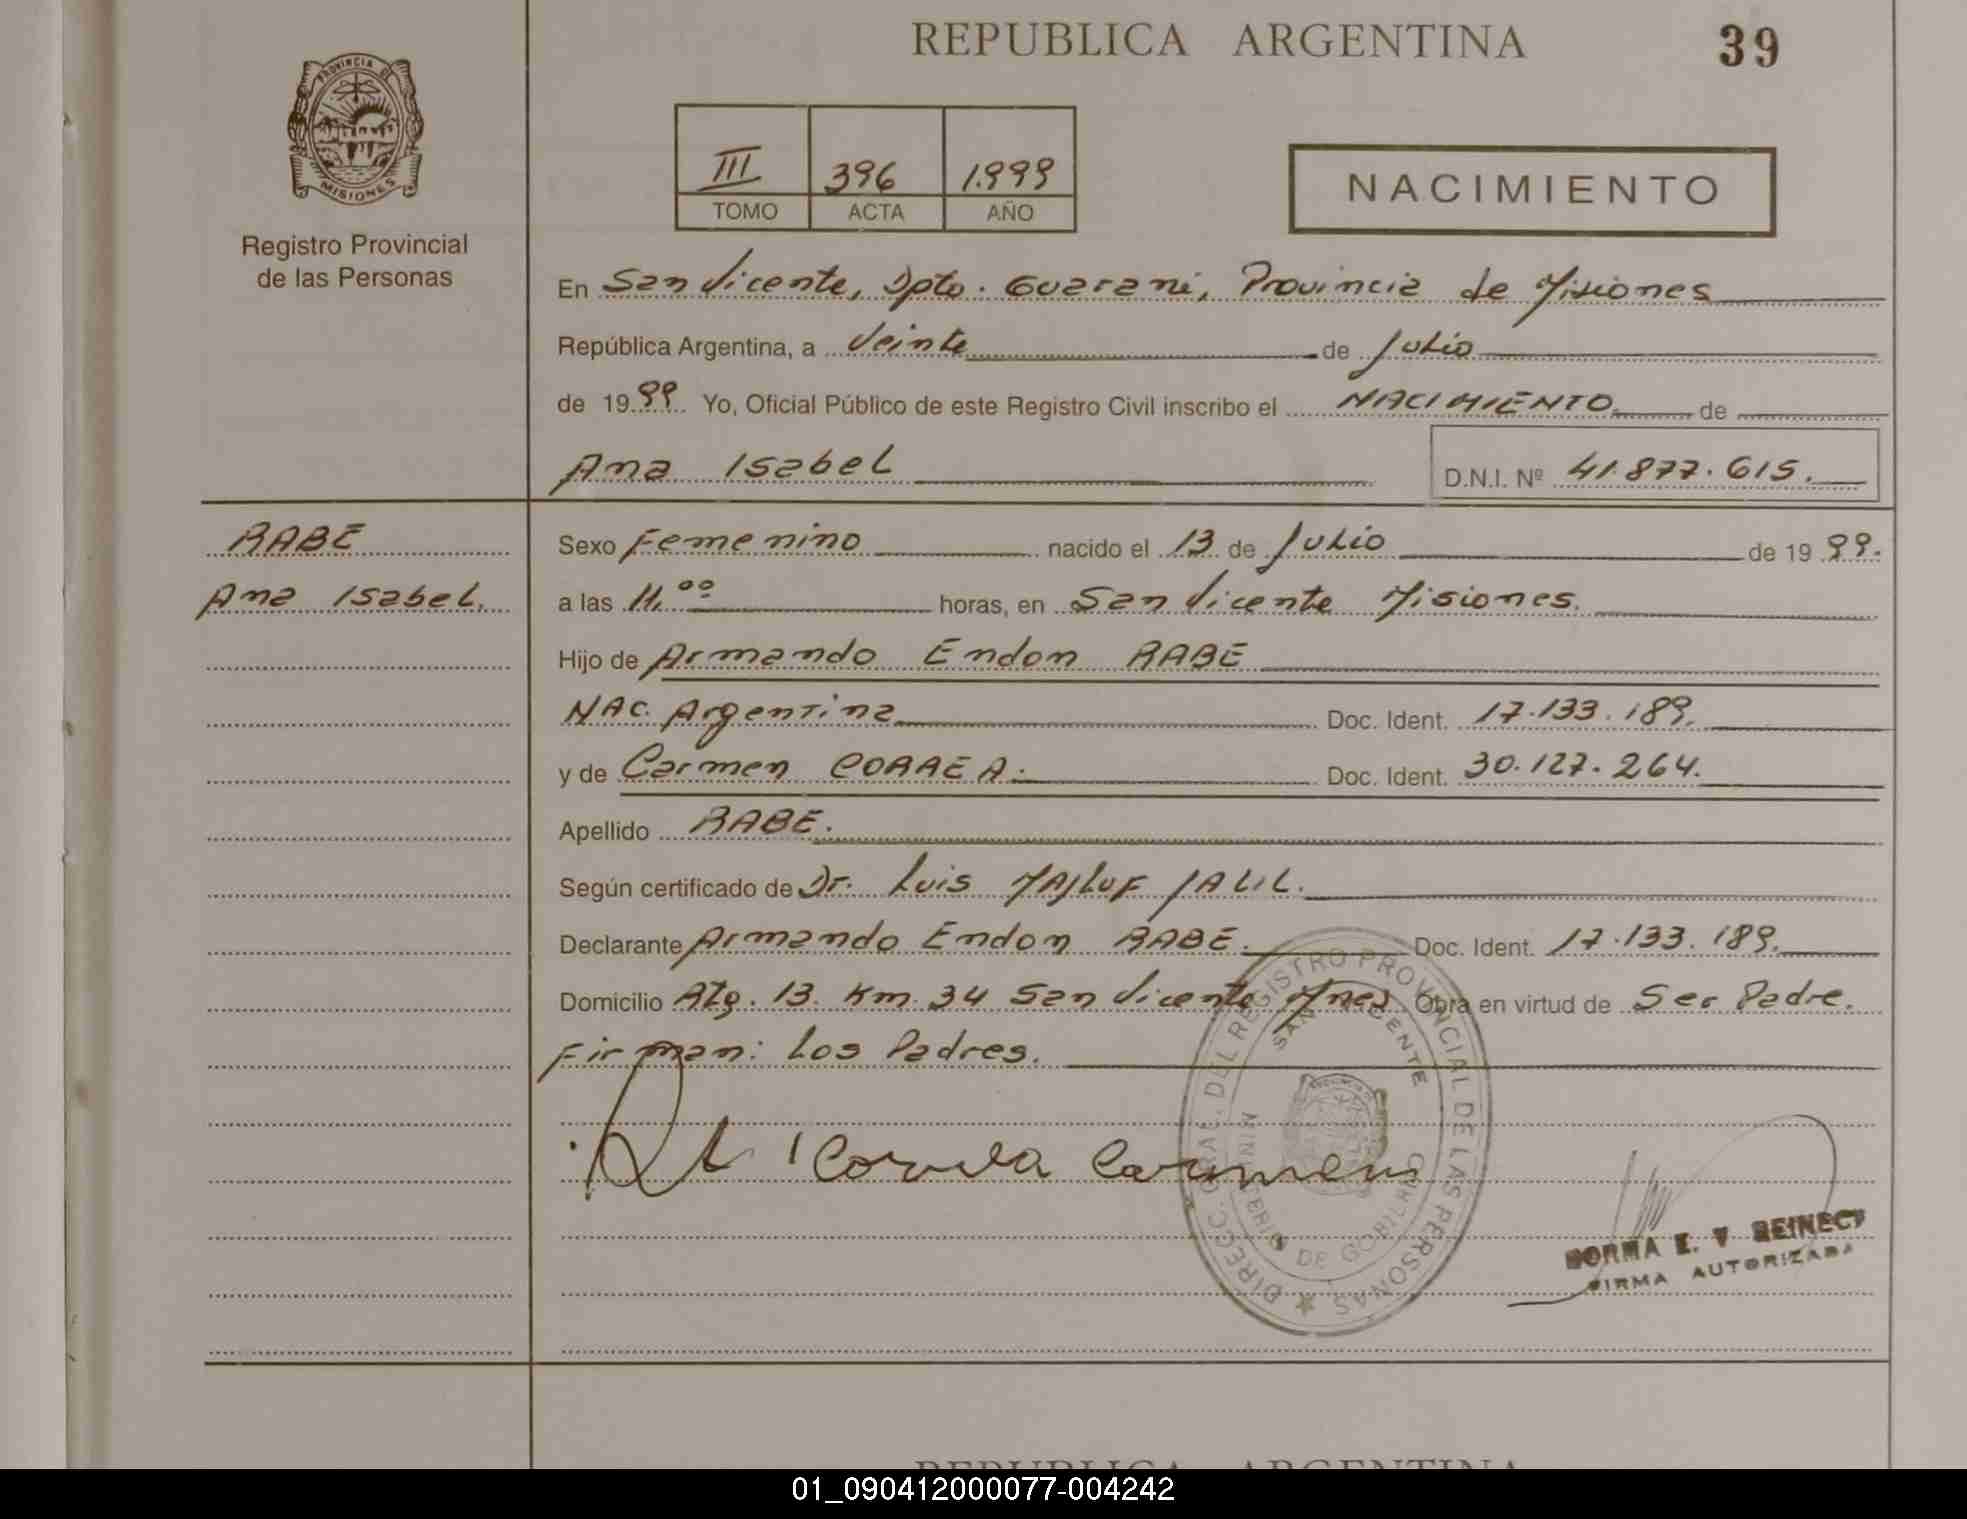 REPUBLICA ARGENTINA
39
PROVINCIA DE
MISIONES
Registro Provincial
de las Personas
III 396 1.999
TOMO ACTA AÑO
NACIMIENTO
En San Vicente, Dpto. Guarani, Provincia de Misiones
República Argentina, a Veinte de Julio
de 1999 Yo, Oficial Público de este Registro Civil inscribo el NACIMIENTO de
Ana Isabel D.N.I. Nº 41.877.615.
RABE
Ana Isabel.
Sexo Femenino nacido el 13 de Julio de 1999.
a las 11.00 horas, en San Vicente Misiones.
Hijo de Armando Endon RABE
NAC. Argentina Doc. Ident. 17.133.189.
y de Carmen CORREA. Doc. Ident. 30.127.264.
Apellido RABE.
Según certificado de Dr. Luis MAJLUF JALIL.
Declarante Armando Endon RABE. Doc. Ident. 17.133.189.
Domicilio Ruta 13 Km. 34 San Vicente Mnes Obra en virtud de Ser Padre.
Firman: Los Padres.
Correa Carmen
DIRECC. GRAL. DEL REGISTRO PROVINCIAL DE LAS PERSONAS
SAN VICENTE
MINISTERIO DE GOBIERNO
NORMA E. V REINECK
FIRMA AUTORIZADA
REPUBLICA ARGENTINA
01_090412000077-004242